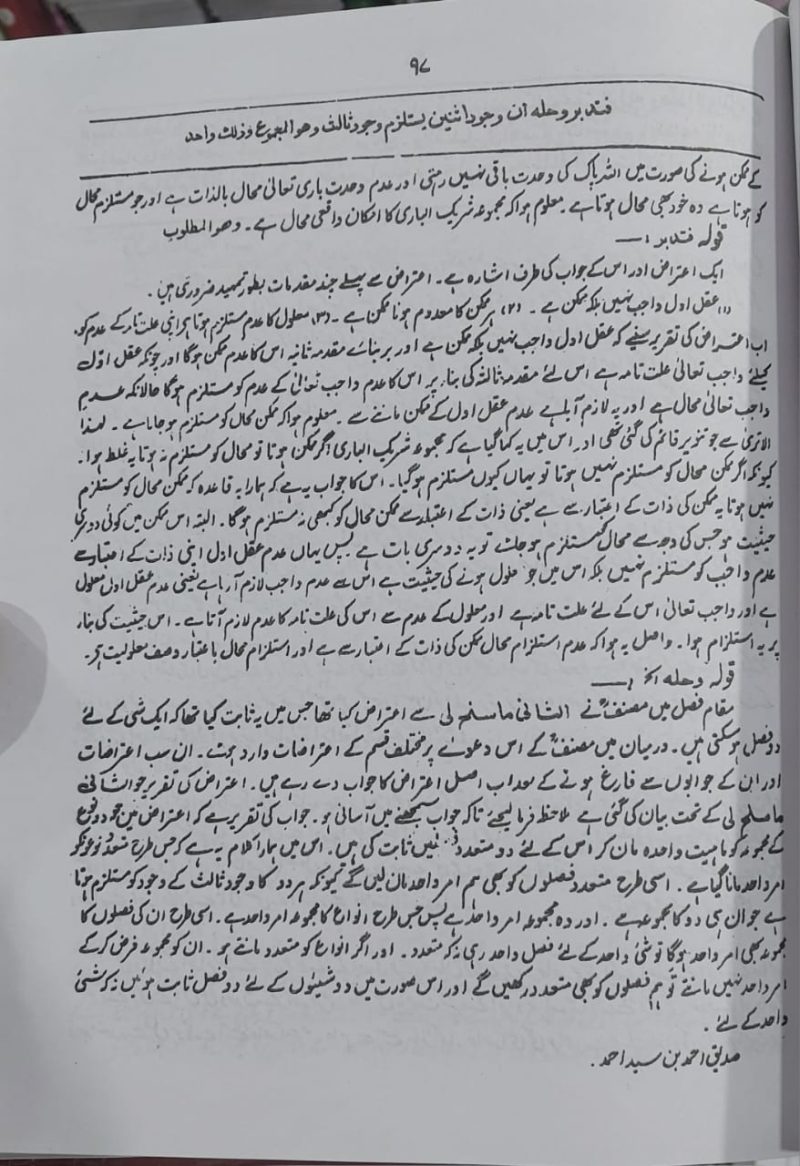 ۹۸
فتدبر وحله ان وجود اثنین یستلزم وجود ثالث وهو المجموع وذلك واحد
کے ممکن ہونے کی صورت میں اللہ پاک کی وحدت باقی نہیں رہتی اور عدم وحدت باری تعالیٰ محال بالذات ہے اور جو مستلزم محال
کو ہوتا ہے وہ خود بھی محال ہوتا ہے۔ معلوم ہوا کہ مجموعہ شریک الباری کا امکان واقعی محال ہے۔ وھو المطلوب
قولہ فتدبر :—
ایک اعتراض اور اس کے جواب کی طرف اشارہ ہے۔ اعتراض سے پہلے چند مقدمات بطور تمہید ضروری ہیں۔
(۱) عقل اول واجب نہیں بلکہ ممکن ہے۔ (۲) ہر ممکن کا معدوم ہونا ممکن ہے۔ (۳) معلول کا عدم مستلزم ہوتا ہے اپنی علت تامہ کے عدم کو۔
اب اعتراض کی تقریر سنیے کہ عقل اول واجب نہیں بلکہ ممکن ہے اور بر بنائے مقدمہ ثانیہ اس کا عدم ممکن ہوگا اور چونکہ عقل اوّل
کیلئے واجب تعالیٰ علت تامہ ہے اس لئے مقدمہ ثالثہ کی بناء پر اس کا عدم واجب تعالیٰ کے عدم کو مستلزم ہوگا حالانکہ عدم
واجب تعالیٰ محال ہے اور یہ لازم آیا ہے عدم عقل اول کے ممکن ماننے سے۔ معلوم ہوا کہ ممکن محال کو مستلزم ہو جاتا ہے۔ لہذا
الاتریٰ سے جو تنویر قائم کی گئی تھی اور اس میں یہ کہا گیا ہے کہ مجموعہ شریک الباری اگر ممکن ہوتا تو محال کو مستلزم نہ ہوتا یہ غلط ہوا۔
کیونکہ اگر ممکن محال کو مستلزم نہیں ہوتا تو یہاں کیوں مستلزم ہوگیا۔ اس کا جواب یہ ہے کہ ہمارا یہ قاعدہ کہ ممکن محال کو مستلزم
نہیں ہوتا یہ ممکن کی ذات کے اعتبار سے ہے یعنی ذات کے اعتبار سے ممکن محال کو کبھی نہ مستلزم ہوگا۔ البتہ اس ممکن میں کوئی دوسری
حیثیت ہو جس کی وجہ سے محال کو مستلزم ہو جائے تو یہ دوسری بات ہے پس یہاں عدم عقل اول اپنی ذات کے اعتبار سے
عدم واجب کو مستلزم نہیں بلکہ اس میں جو معلول ہونے کی حیثیت ہے اس سے عدم واجب لازم آرہا ہے یعنی عدم عقل اول معلول
ہے اور واجب تعالیٰ اس کے لئے علت تامہ ہے اور معلول کے عدم سے اس کی علت تامہ کا عدم لازم آتا ہے۔ اس حیثیت کی بناء
پر یہ استلزام ہوا۔ حاصل یہ ہوا کہ عدم استلزام محال ممکن کی ذات کے اعتبار سے ہے اور استلزام محال باعتبار وصف معلولیت ہے۔
قولہ وحلہ الخ :—
مقام فصل میں مصنفؒ نے الثانی ماسنح لی سے اعتراض کیا تھا جس میں یہ ثابت کیا تھا کہ ایک شی کے لئے
دو فصل ہو سکتی ہیں۔ درمیان میں مصنفؒ کے اس دعوے پر مختلف قسم کے اعتراضات وارد ہوئے۔ ان سب اعتراضات
اور ان کے جوابوں سے فارغ ہونے کے بعد اب اصل اعتراض کا جواب دے رہے ہیں۔ اعتراض کی تقریر جو الثانی
ماسنح لی کے تحت بیان کی گئی ہے ملاحظہ فرما لیجئے تاکہ جواب سمجھنے میں آسانی ہو۔ جواب کی تقریر ہے کہ اعتراض میں جو دو نوع
کے مجموعہ کو ماہیت واحدہ مان کر اس کے لئے دو متعدد فصلیں ثابت کی ہیں۔ اس میں ہمارا کلام یہ ہے کہ جس طرح متعدد نوعوں کو
امر واحد مانا گیا ہے۔ اسی طرح متعدد فصلوں کو بھی ہم امر واحد مان لیں گے کیونکہ ہر دو کا وجود ثالث کے وجود کو مستلزم ہوتا
ہے جو ان ہی دو کا مجموعہ ہے۔ اور وہ مجموعہ امر واحد ہے پس جس طرح انواع کا مجموعہ امر واحد ہے۔ اسی طرح ان کی فصلوں کا
مجموعہ بھی امر واحد ہوگا تو شئ واحد کے لئے فصل واحد رہی نہ کہ متعدد۔ اور اگر انواع کو متعدد مانتے ہو۔ ان کو مجموعہ فرض کرکے
امر واحد نہیں مانتے تو ہم فصلوں کو بھی متعدد رکھیں گے اور اس صورت میں دو شیئوں کے لئے دو فصل ثابت ہوئیں نہ کہ شئ
واحد کے لئے۔
صدیق احمد بن سید احمد۔